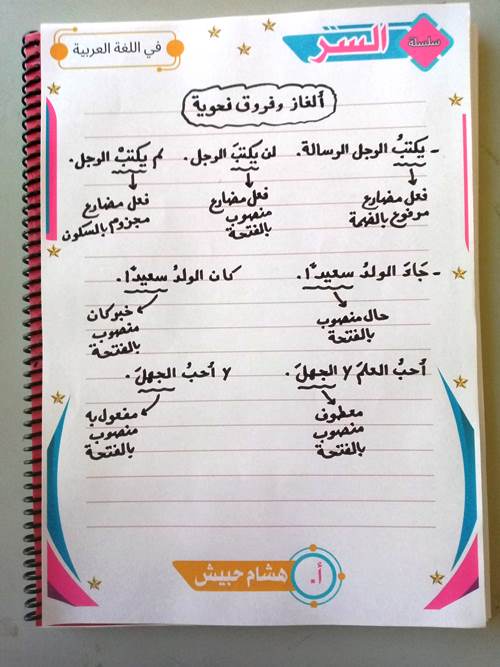 سلسلة السر
في اللغة العربية
ألغاز وفروق نحوية
- يكتبُ الرجل الرسالة. لن يكتبَ الرجل. لم يكتبْ الرجل.
فعل مضارع فعل مضارع فعل مضارع
مرفوع بالضمة منصوب مجزوم بالسكون
بالفتحة
- جَاءَ الولدُ سعيدًا. كان الولدُ سعيدًا.
حال منصوب خبر كان
بالفتحة منصوب
بالفتحة
أحبُ العلمَ لا الجهلَ. لا أحبُ الجهلَ.
معطوف مفعول به
منصوب منصوب
بالفتحة بالفتحة
أ. هشام حبيش